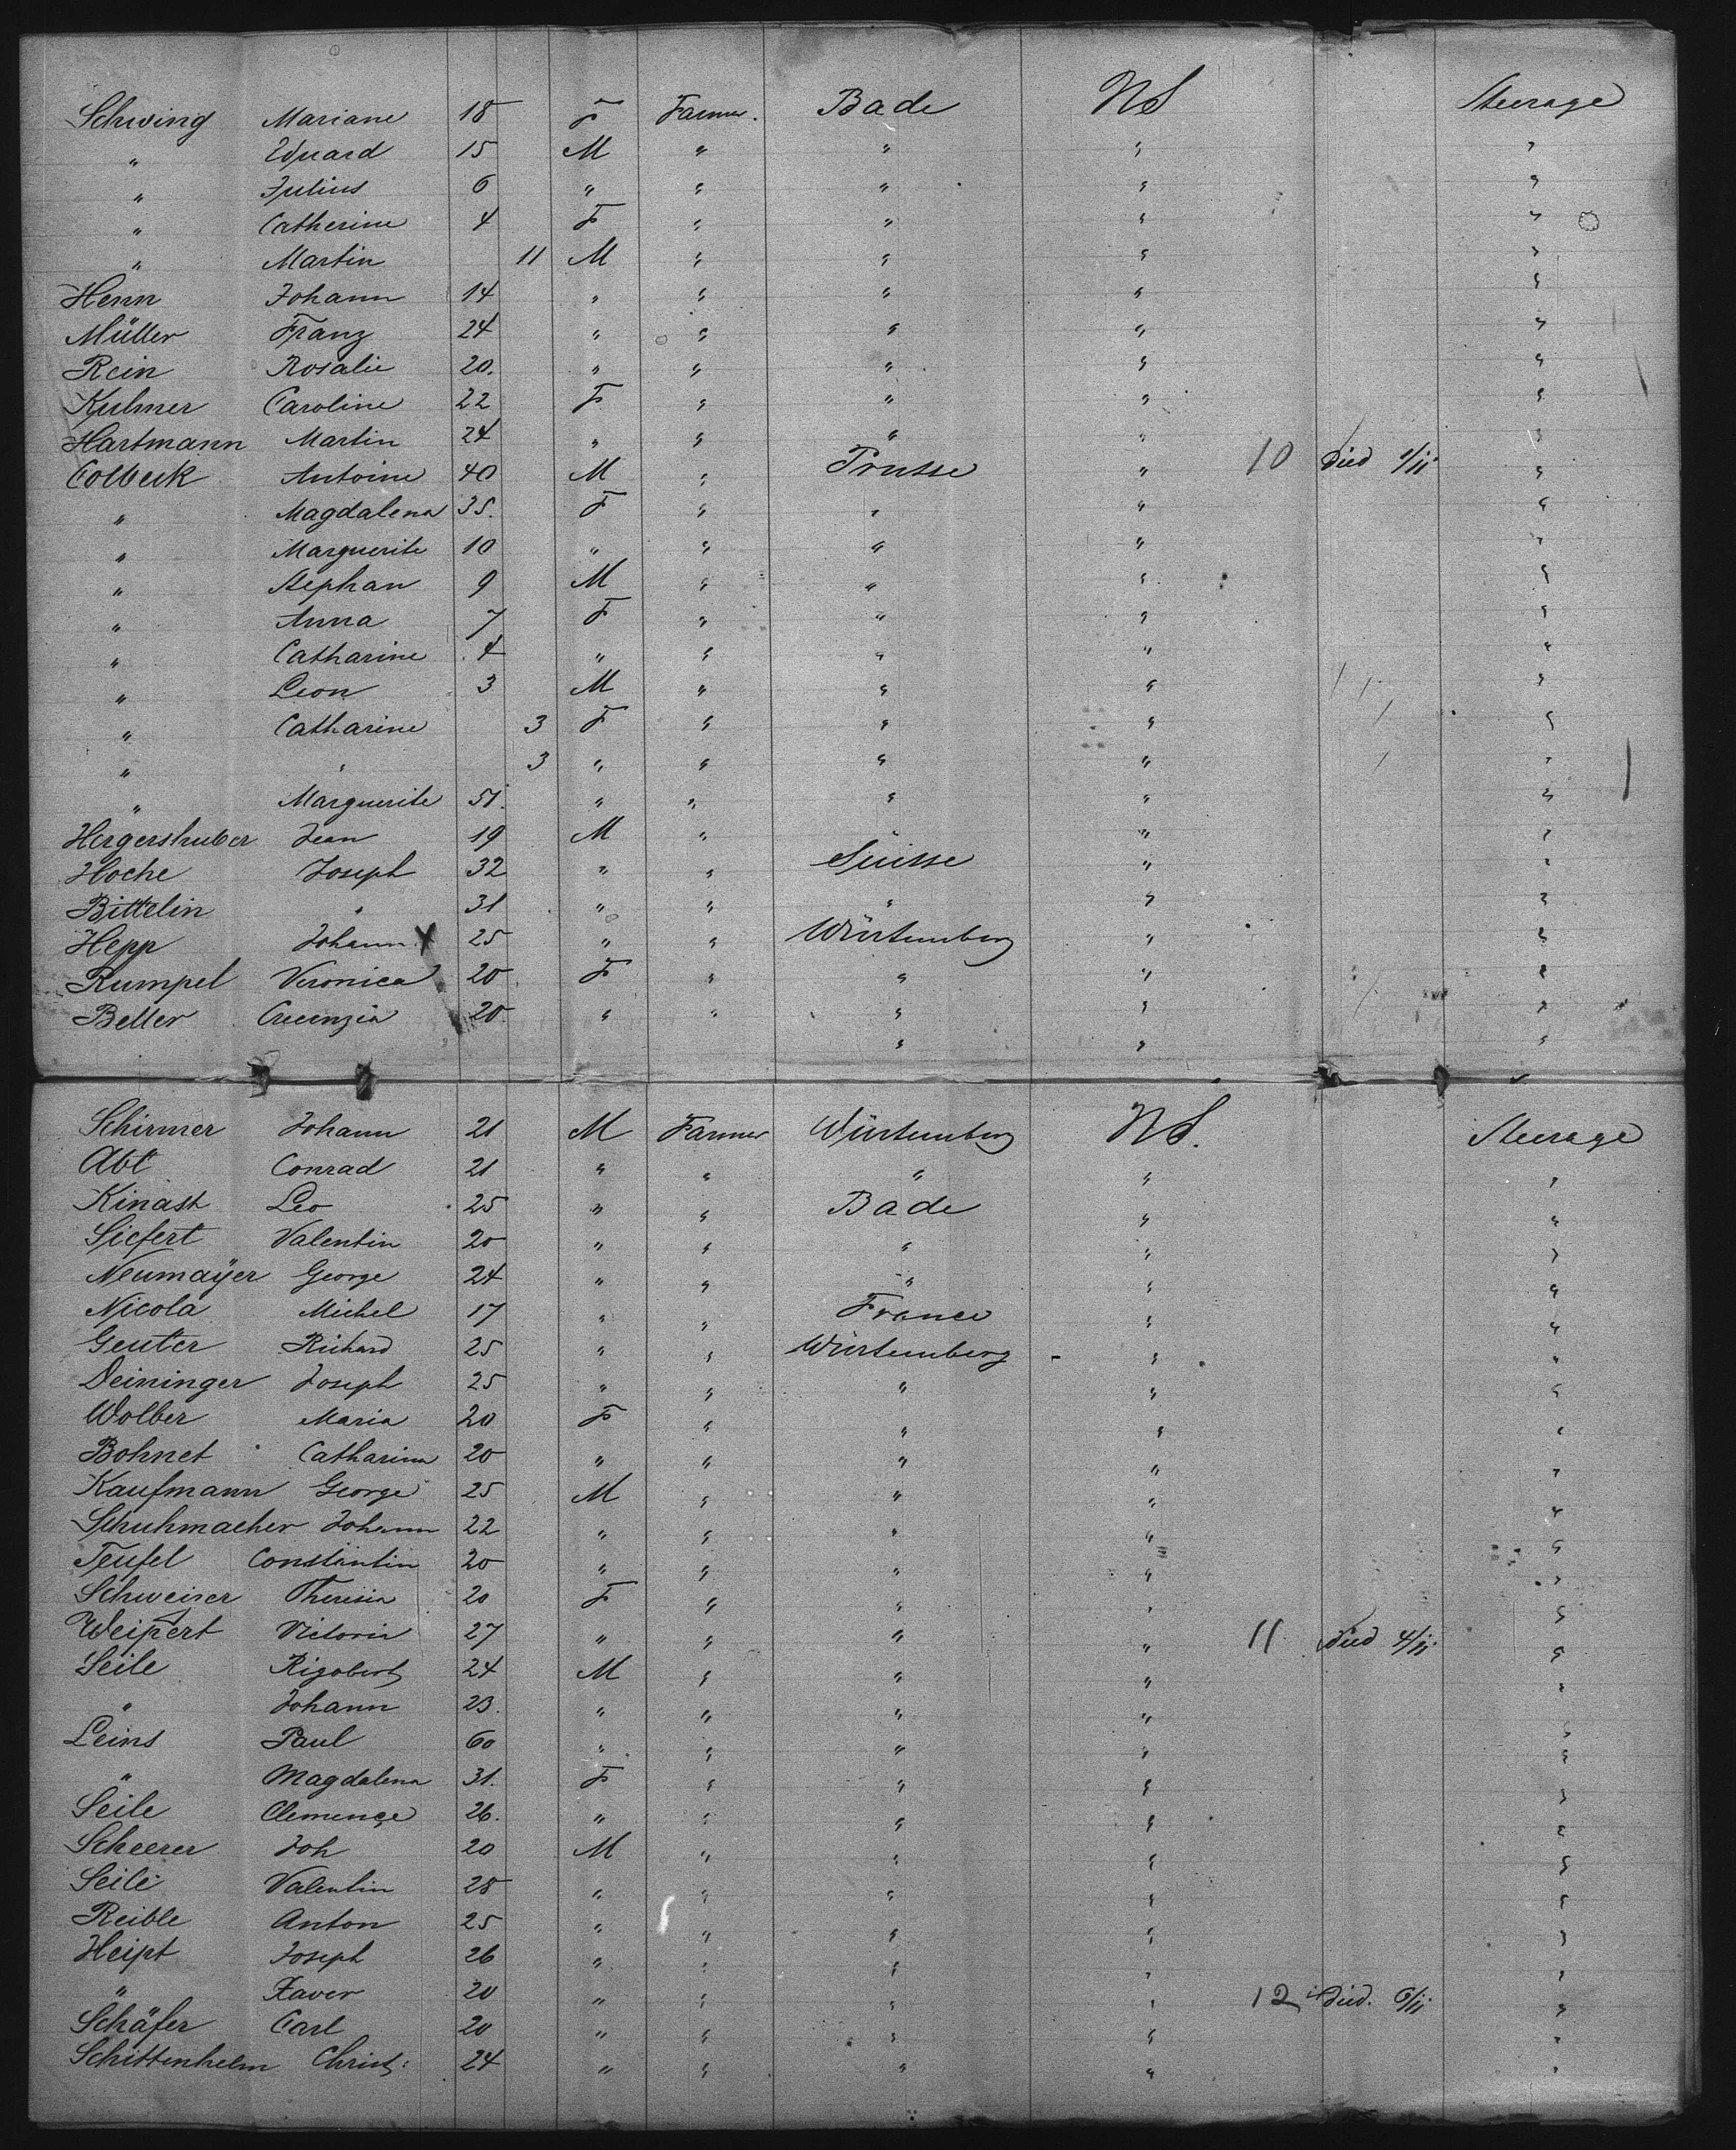 Schwing Mariane 18 F Farmer. Bade US Steerage
" Eduard 15 M " " " "
" Julius 6 " " " " "
" Catherine 4 F " " " "
" Martin 11 M " " " "
Henn Johann 14 " " " " "
Müller Franz 24 " " " " "
Rein Rosalie 20. " " " " "
Kulmer Caroline 22 F " " " "
Hartmann Martin 24 " " " " "
Colbeck Antoine 40 M " Prusse " 10 Died 1/11 "
" Magdalena 35. F " " " "
" Marguerite 10 " " " " "
" Stephan 9 M " " " "
" Anna 7 F " " " "
" Catharine 4 " " " " "
" Leon 3 M " " " "
" Catharine 3 F " " " "
" " 3 " " " " "
" Marguerite 51. " " " " "
Hergershuber Jean 19 M " " "
Hoche Joseph 32 " " Suisse " "
Bittelin " 31 " " " " "
Hepp Johann X 25 " " Würtemberg " "
Rumpel Veronica 20 F " " " "
Beller Crecenzia 20. " " " " "
" " "
Schirmer Johann 21 M Farmer Würtemberg US. Steerage
Abt Conrad 21 " " " " "
Kinast Leo 25 " " Bade " "
Siefert Valentin 20 " " " " "
Neumaÿer George 24 " " " " "
Nicola Michel 17 " " France " "
Geuter Richard 25 " " Würtemberg - " "
Deininger Joseph 25 " " " " "
Wolber Maria 20 F " " " "
Bohnet Catharina 20 " " " " "
Kaufmann George 25 M " " " "
Schuhmacher Johann 22 " " " " "
Teufel Constantin 20 " " " " "
Schweiser Theresia 20 F " " " "
Weipert Victoria 27 " " " " 11 Died 4/11 "
Seile Rigobert 24 M " " " "
" Johann 23. " " " " "
Leins Paul 60 " " " " "
" Magdalena 31. F " " " "
Seile Clemence 26. " " " " "
Scheerer Joh 20 M " " " "
Seile Valentin 28 " " " " "
Reible Anton 25 " " " " "
Heipt Joseph 26 " " " " "
" Xaver 20 " " " " 12 Died. 6/11 "
Schäfer Carl 20 " " " " "
Schittenhelm Christ: 24 " " " " "